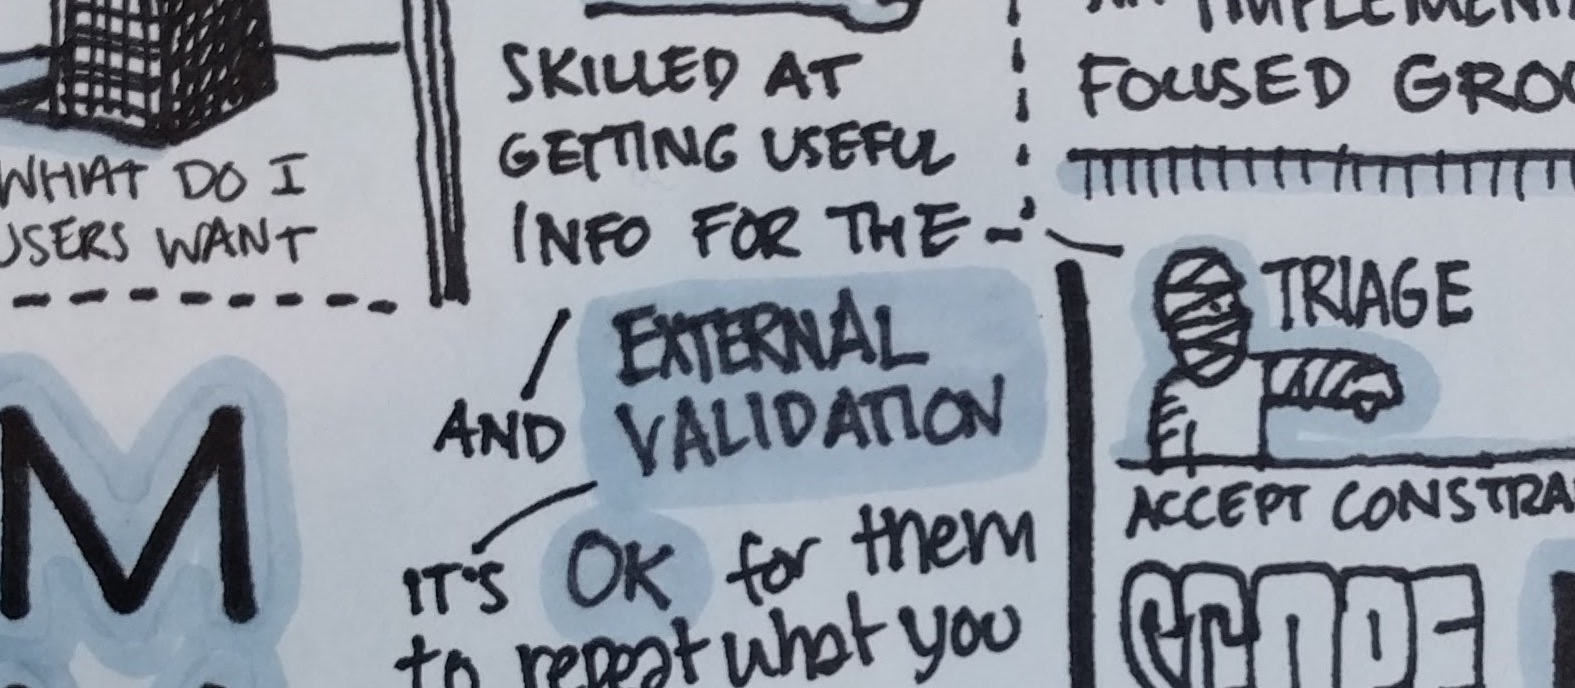 WHAT DO I
USERS WANT
M
SKILLED AT
GETTING USEFUL
INFO FOR THE
AND EXTERNAL
VALIDATION
IT'S OK for them
to repeat what you
FOCUSED
TRIAGE
ACCEPT